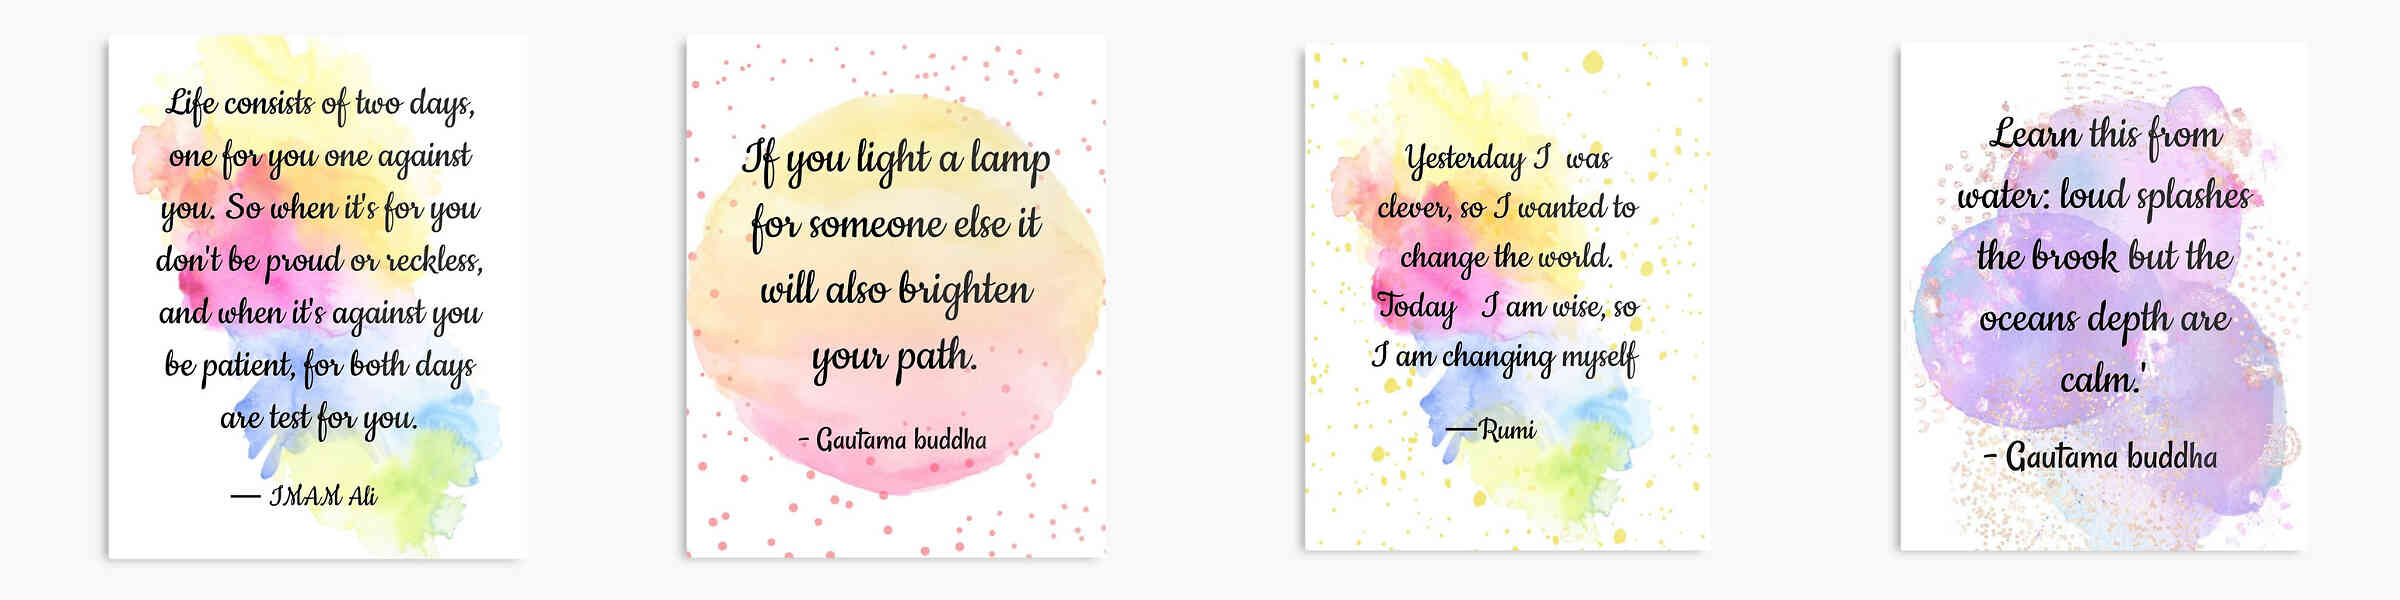 Life consists of two days,
one for you one against
you. So when it's for you
don't be proud or reckless,
and when it's against you
be patient, for both days
are test for you.
— IMAM Ali
If you light a lamp
for someone else it
will also brighten
your path.
- Gautama buddha
Yesterday I was
clever, so I wanted to
change the world.
Today I am wise, so
I am changing myself
—Rumi
Learn this from
water: loud splashes
the brook but the
oceans depth are
calm.'
- Gautama buddha